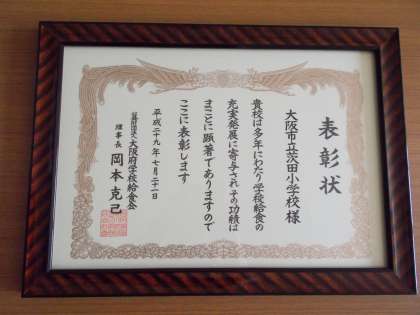 表彰状
大阪市立茨田小学校様
貴校は多年にわたり学校給食の
充実発展に寄与されその功績は
まことに顕著でありますので
ここに表彰します
平成二十九年七月二十一日
公益財団法人大阪府学校給食会
理事長 岡本克己